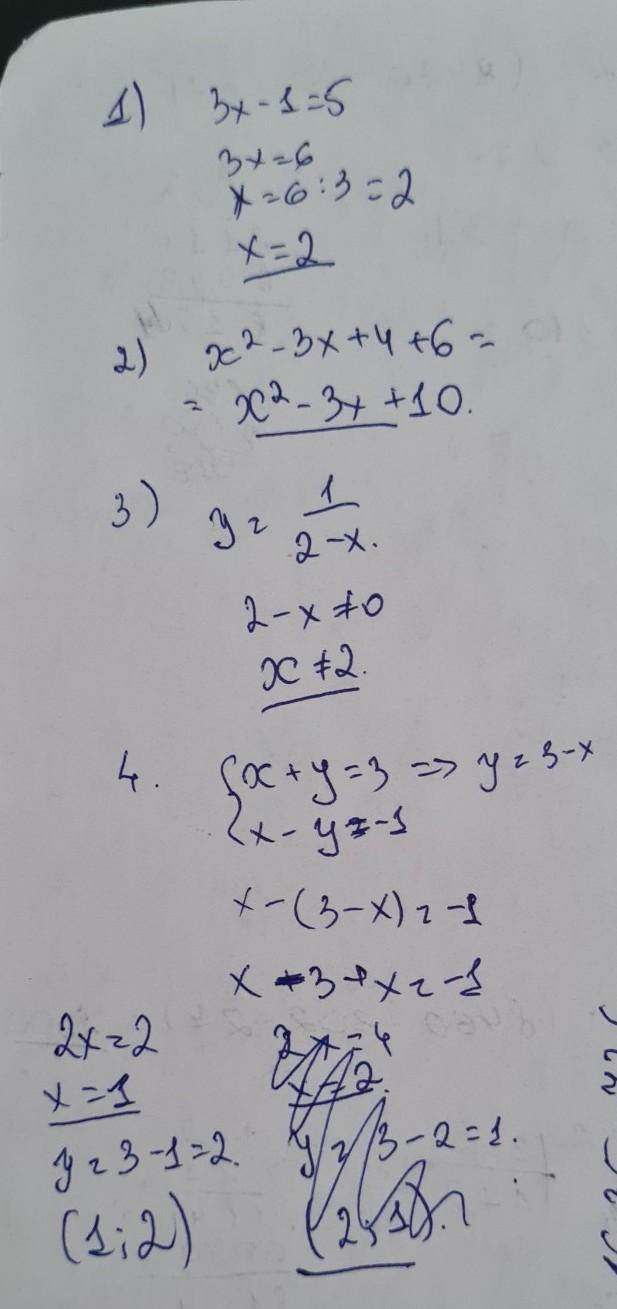 1) 3x - 1 = 5
3x = 6
x = 6 : 3 = 2
x = 2
2) x² - 3x + 4 + 6 =
= x² - 3x + 10.
3) y = 1/(2 - x).
2 - x ≠ 0
x ≠ 2.
4. { x + y = 3 => y = 3 - x
x - y = -1
x - (3 - x) = -1
x - 3 + x = -1
2x = 2
x = 1
y = 3 - 1 = 2.
(1; 2)
2x = 4
x = 2.
y = 3 - 2 = 1.
(2; 1).